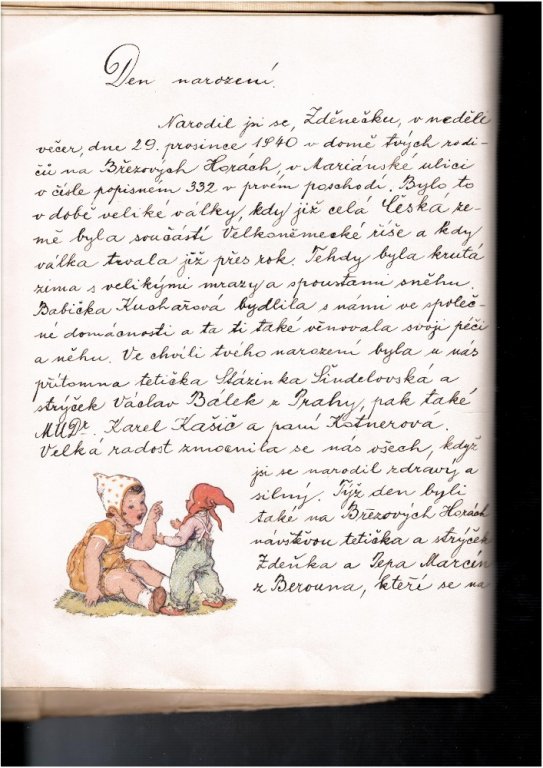 Den narození.
Narodil jsi se, Zděnečku, v neděli
večer, dne 29. prosince 1940 v domě tvých rodi-
čů na Březových Horách, v Mariánské ulici
v čísle popisném 332 v prvém poschodí. Bylo to
v době veliké války, kdy již celá Česká ze-
mě byla součástí Velkoněmecké říše a kdy
válka trvala již přes rok. Tehdy byla krutá
zima s velikými mrazy a spoustami sněhu.
Babička Kuchařová bydlila s námi ve společ-
né domácnosti a ta ti také věnovala svoji péči
a něhu. Ve chvíli tvého narození byla u nás
přítomna tetička Stázinka Šindelovská a
strýček Václav Bálek z Prahy, pak také
MUDr. Karel Kašič a paní Kotnerová.
Velká radost zmocnila se nás všech, když
jsi se narodil zdravý a
silný. Týž den byli
také na Březových Horách
návštěvou tetička a strýček
Zdeňka a Pepa Marcín
z Berouna, kteří se na